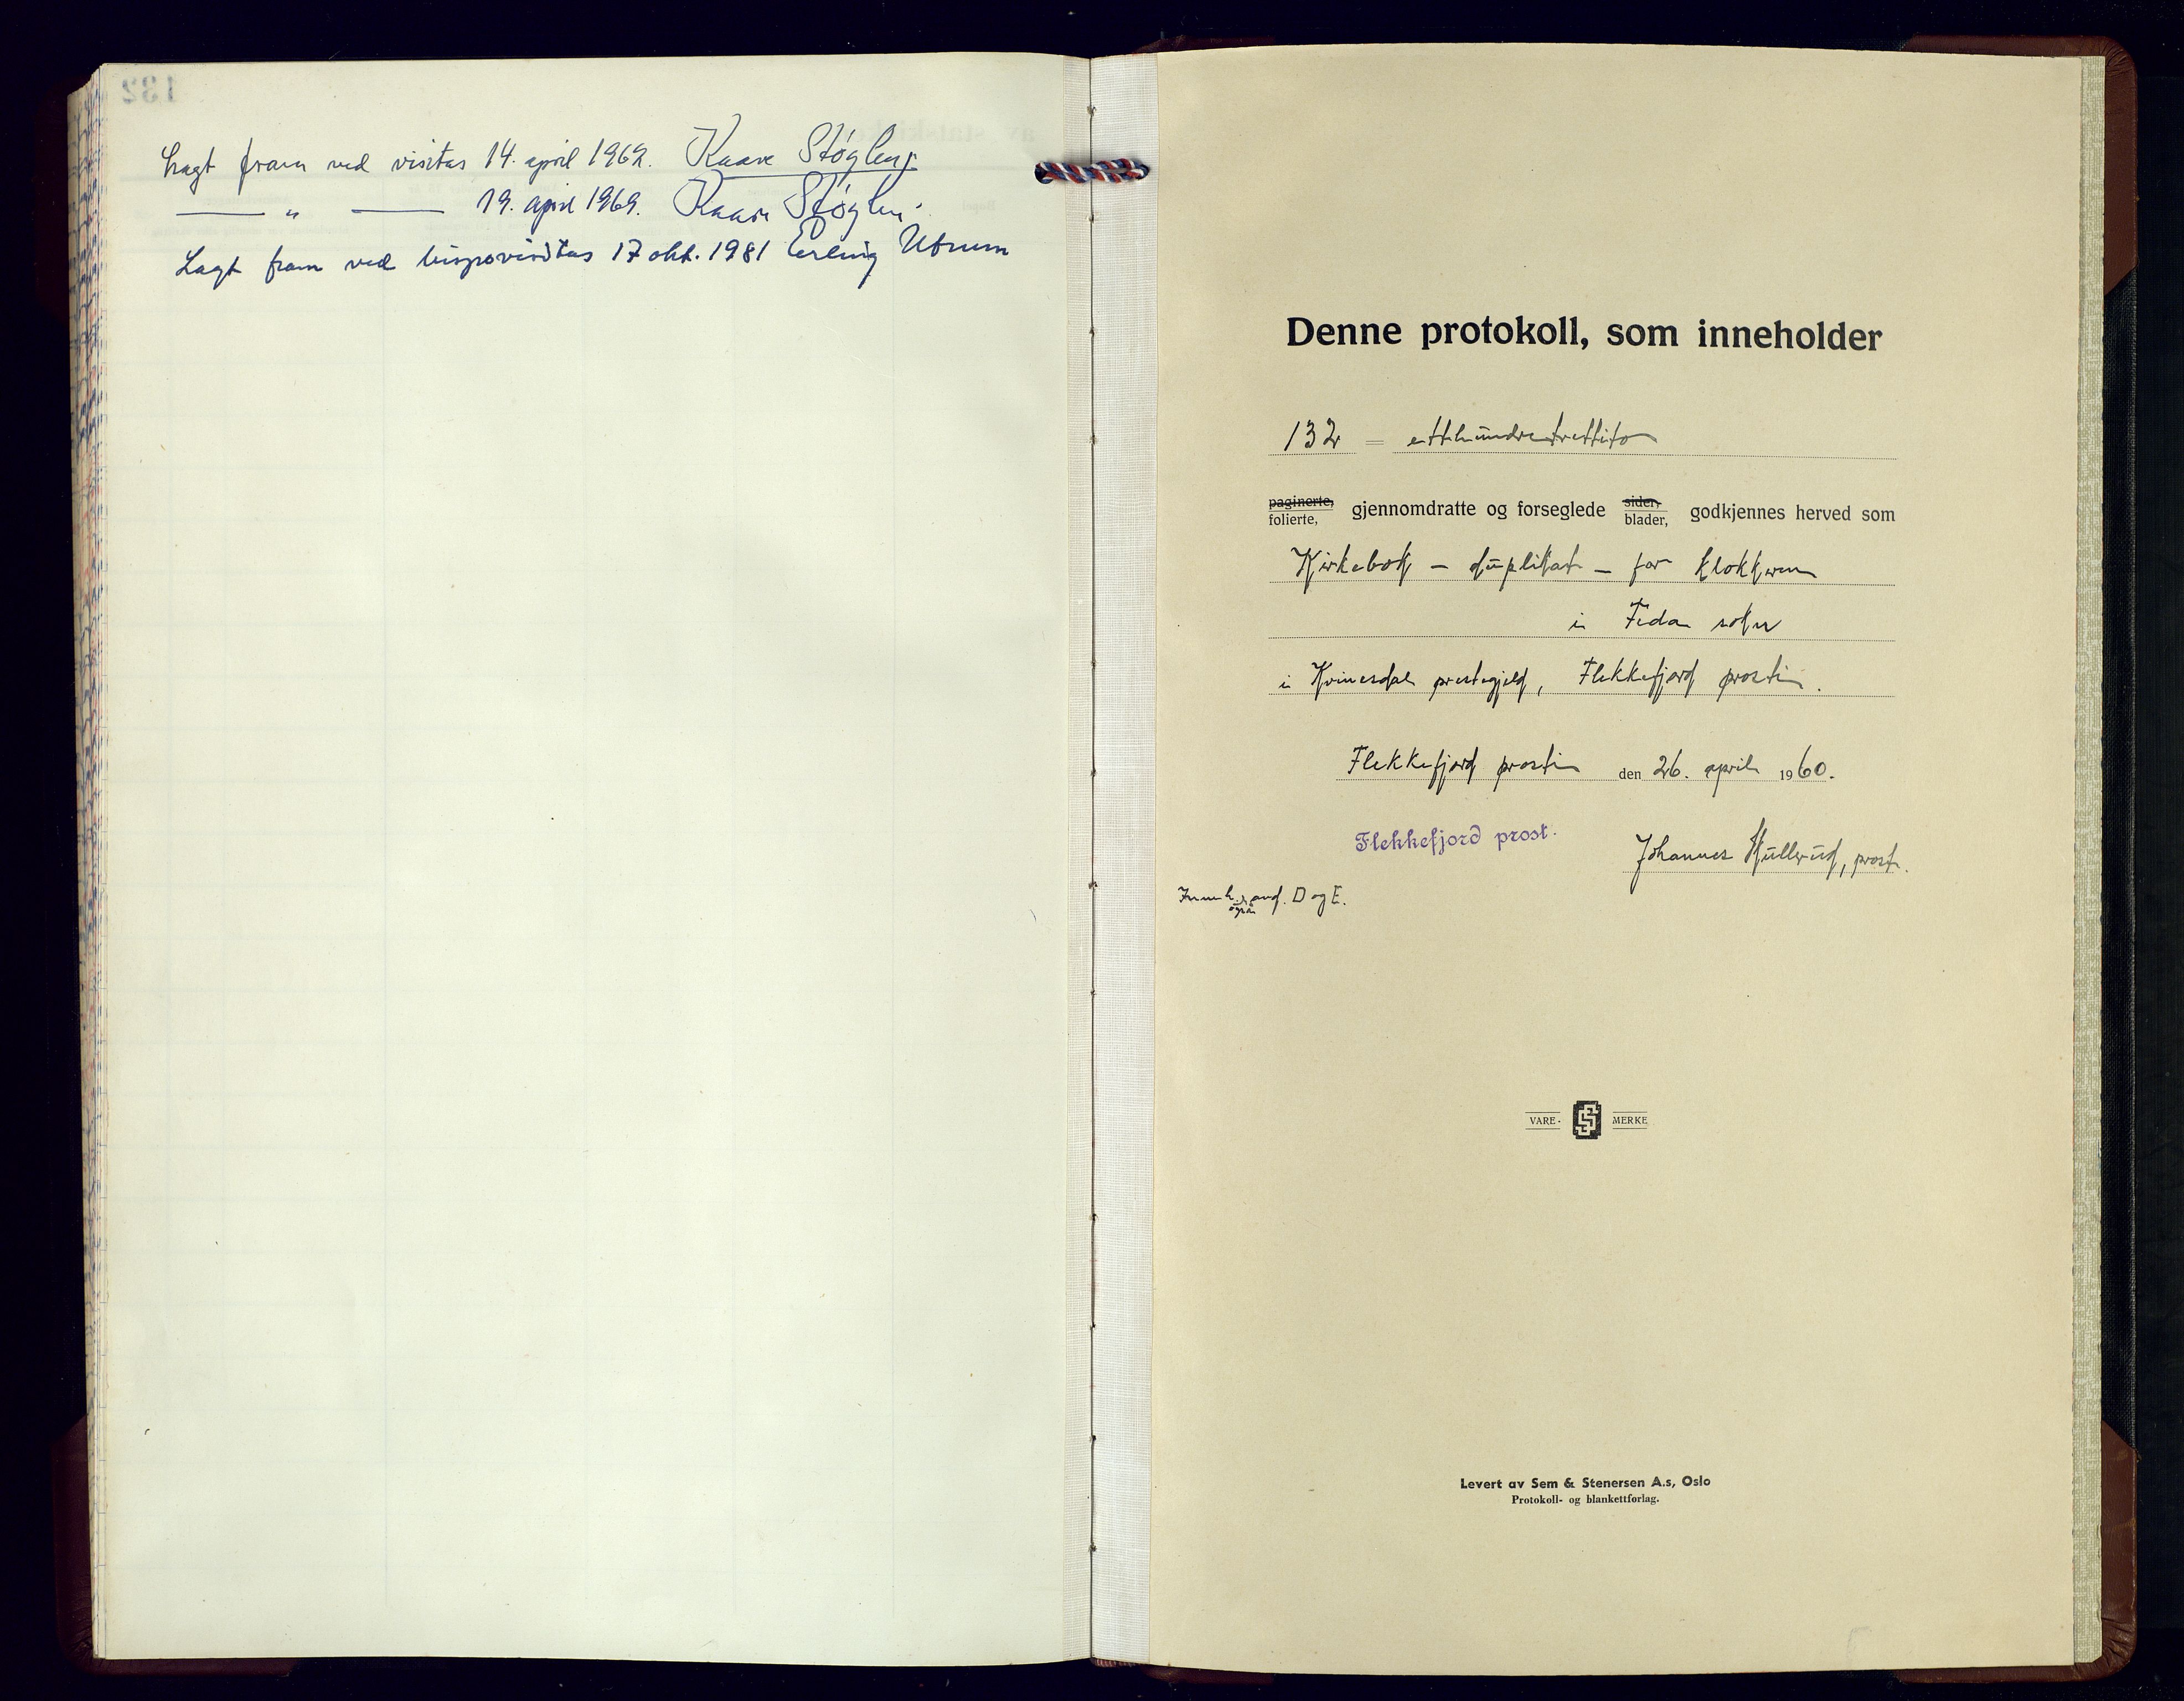 132
Lagt fram ved visitas 14. april 1962. Kaare Støylen
— " — 19. april 1969. Kaare Støylen.
Lagt fram ved bispevisitas 17 okt. 1981 Erling Utnem
Denne protokoll, som inneholder
132 = etthundretrettito
paginerte, folierte, gjennomdratte og forseglede sider, blader, godkjennes herved som
Kirkebok – duplikat – for klokkeren
i Feda sokn
i Kvinesdal prestegjeld, Flekkefjord prosti.
Flekkefjord prosti den 26. april 1960.
Flekkefjord prost.
Johannes Kullerud, prost.
Inneh. også avd. D og E.
VARE- SS MERKE
Levert av Sem & Stenersen A.s, Oslo
Protokoll- og blankettforlag.